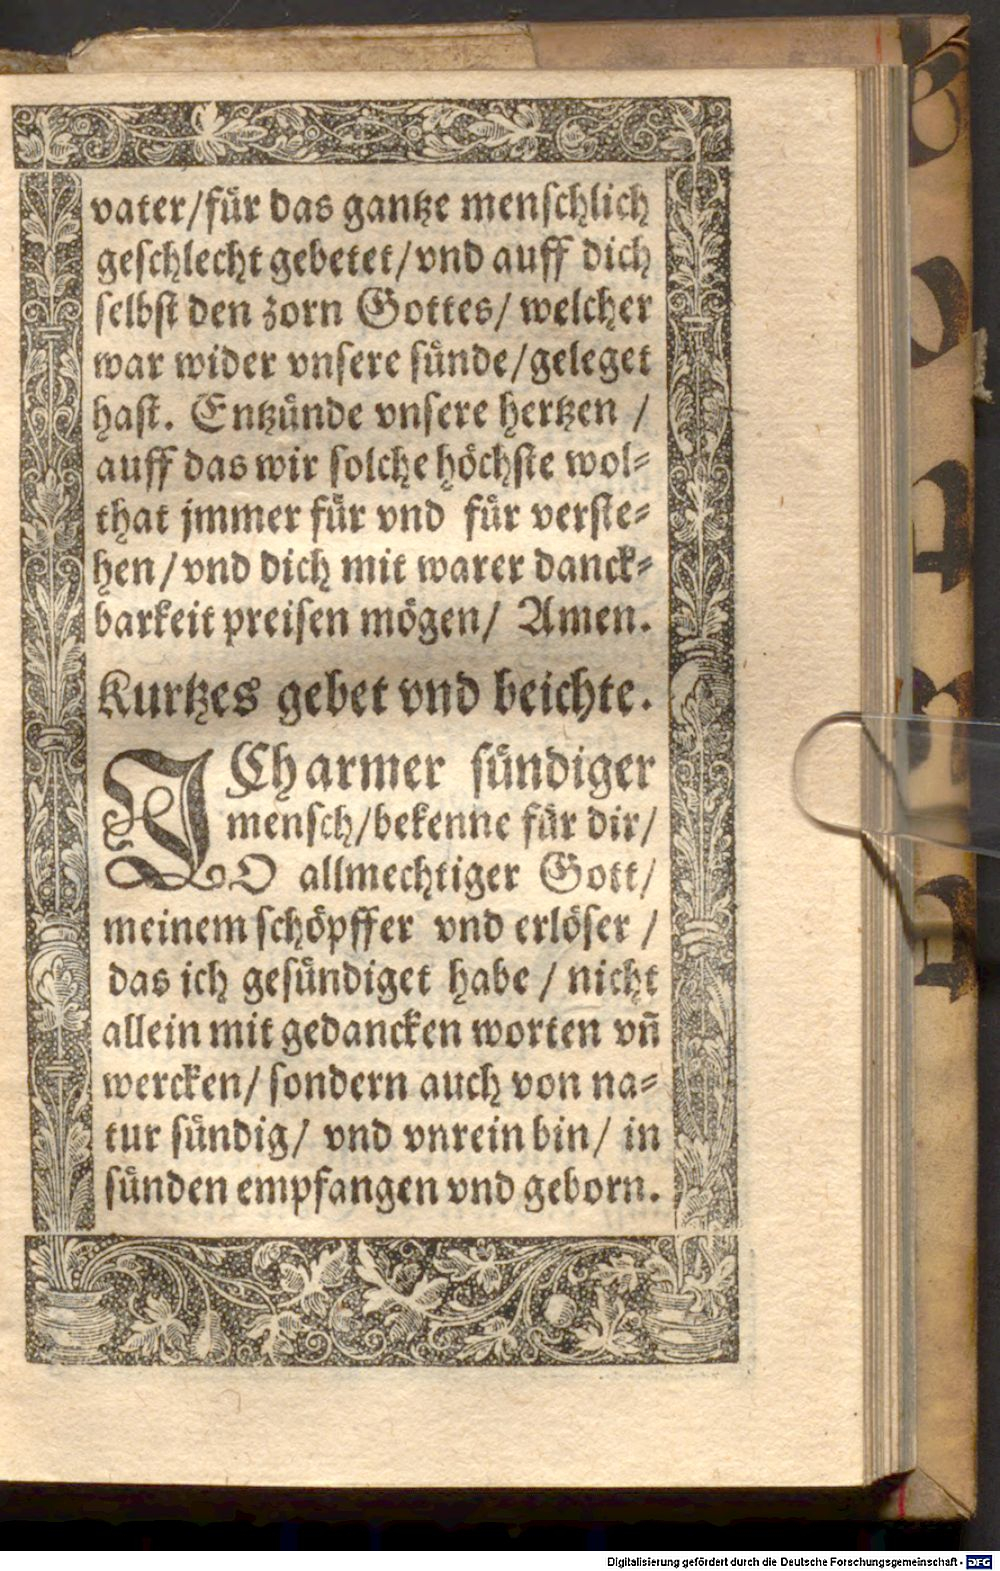 vater/für das gantze menſchlich
geſchlecht gebetet/vnd auff dich
ſelbſt den zorn Gottes/ welcher
war wider vnſere ſünde/geleget
haſt. Entzünde vnſere hertzen /
auff das wir ſolche höchſte wol⸗
that jmmer für vnd für verſte⸗
hen/vnd dich mit warer danck⸗
barkeit preiſen mögen/ Amen.
Kurtzes gebet vnd beichte.
JCh armer ſündiger
menſch/bekenne für dir/
O allmechtiger Gott/
meinem ſchöpffer vnd erlöſer /
das ich geſündiget habe / nicht
allein mit gedancken worten vn̄
wercken/ ſondern auch von na⸗
tur ſündig/ vnd vnrein bin/ in
ſünden empfangen vnd geborn.
Digitalisierung gefördert durch die Deutsche Forschungsgemeinschaft - DFG